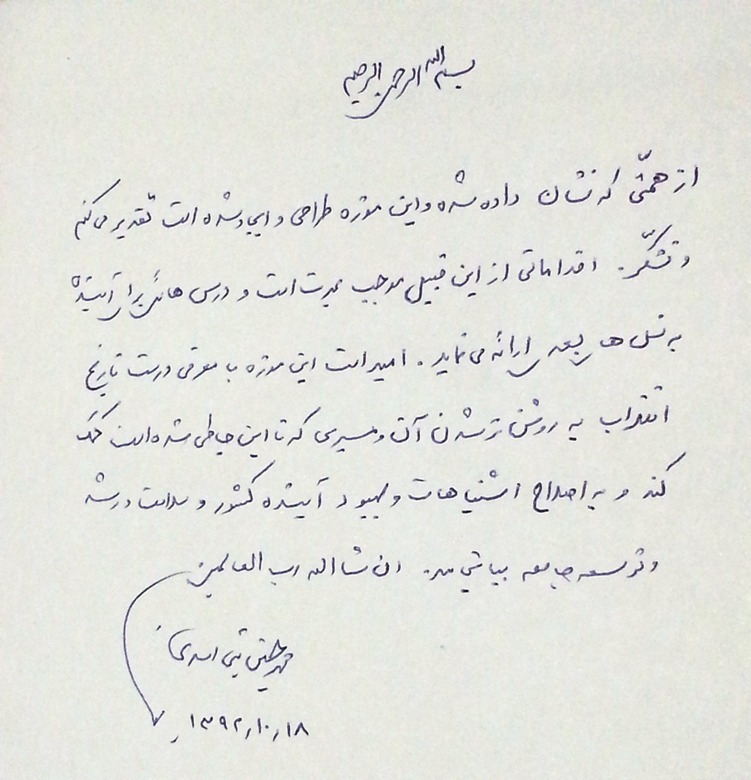 بسم الله الرحمن الرحیم
از همتی که نشان داده شده و این موزه طراحی و ایجاد شده است تقدیر می‌کنم
و تشکر. اقداماتی از این قبیل موجب عبرت است و درس هائی برای آینده
به نسل های بعدی ارائه می نماید. امید است این موزه با معرفی درست تاریخ
انقلاب به روشن تر شدن آن و مسیری که تا این جا طی شده است کمک
کند و به اصلاح اشتباهات و بهبود آینده کشور و سلامت و رشد
و توسعه جامعه بیانجامد. ان شا الله رب العالمین
محمد
۱۳۹۲٫۱۰٫۱۸